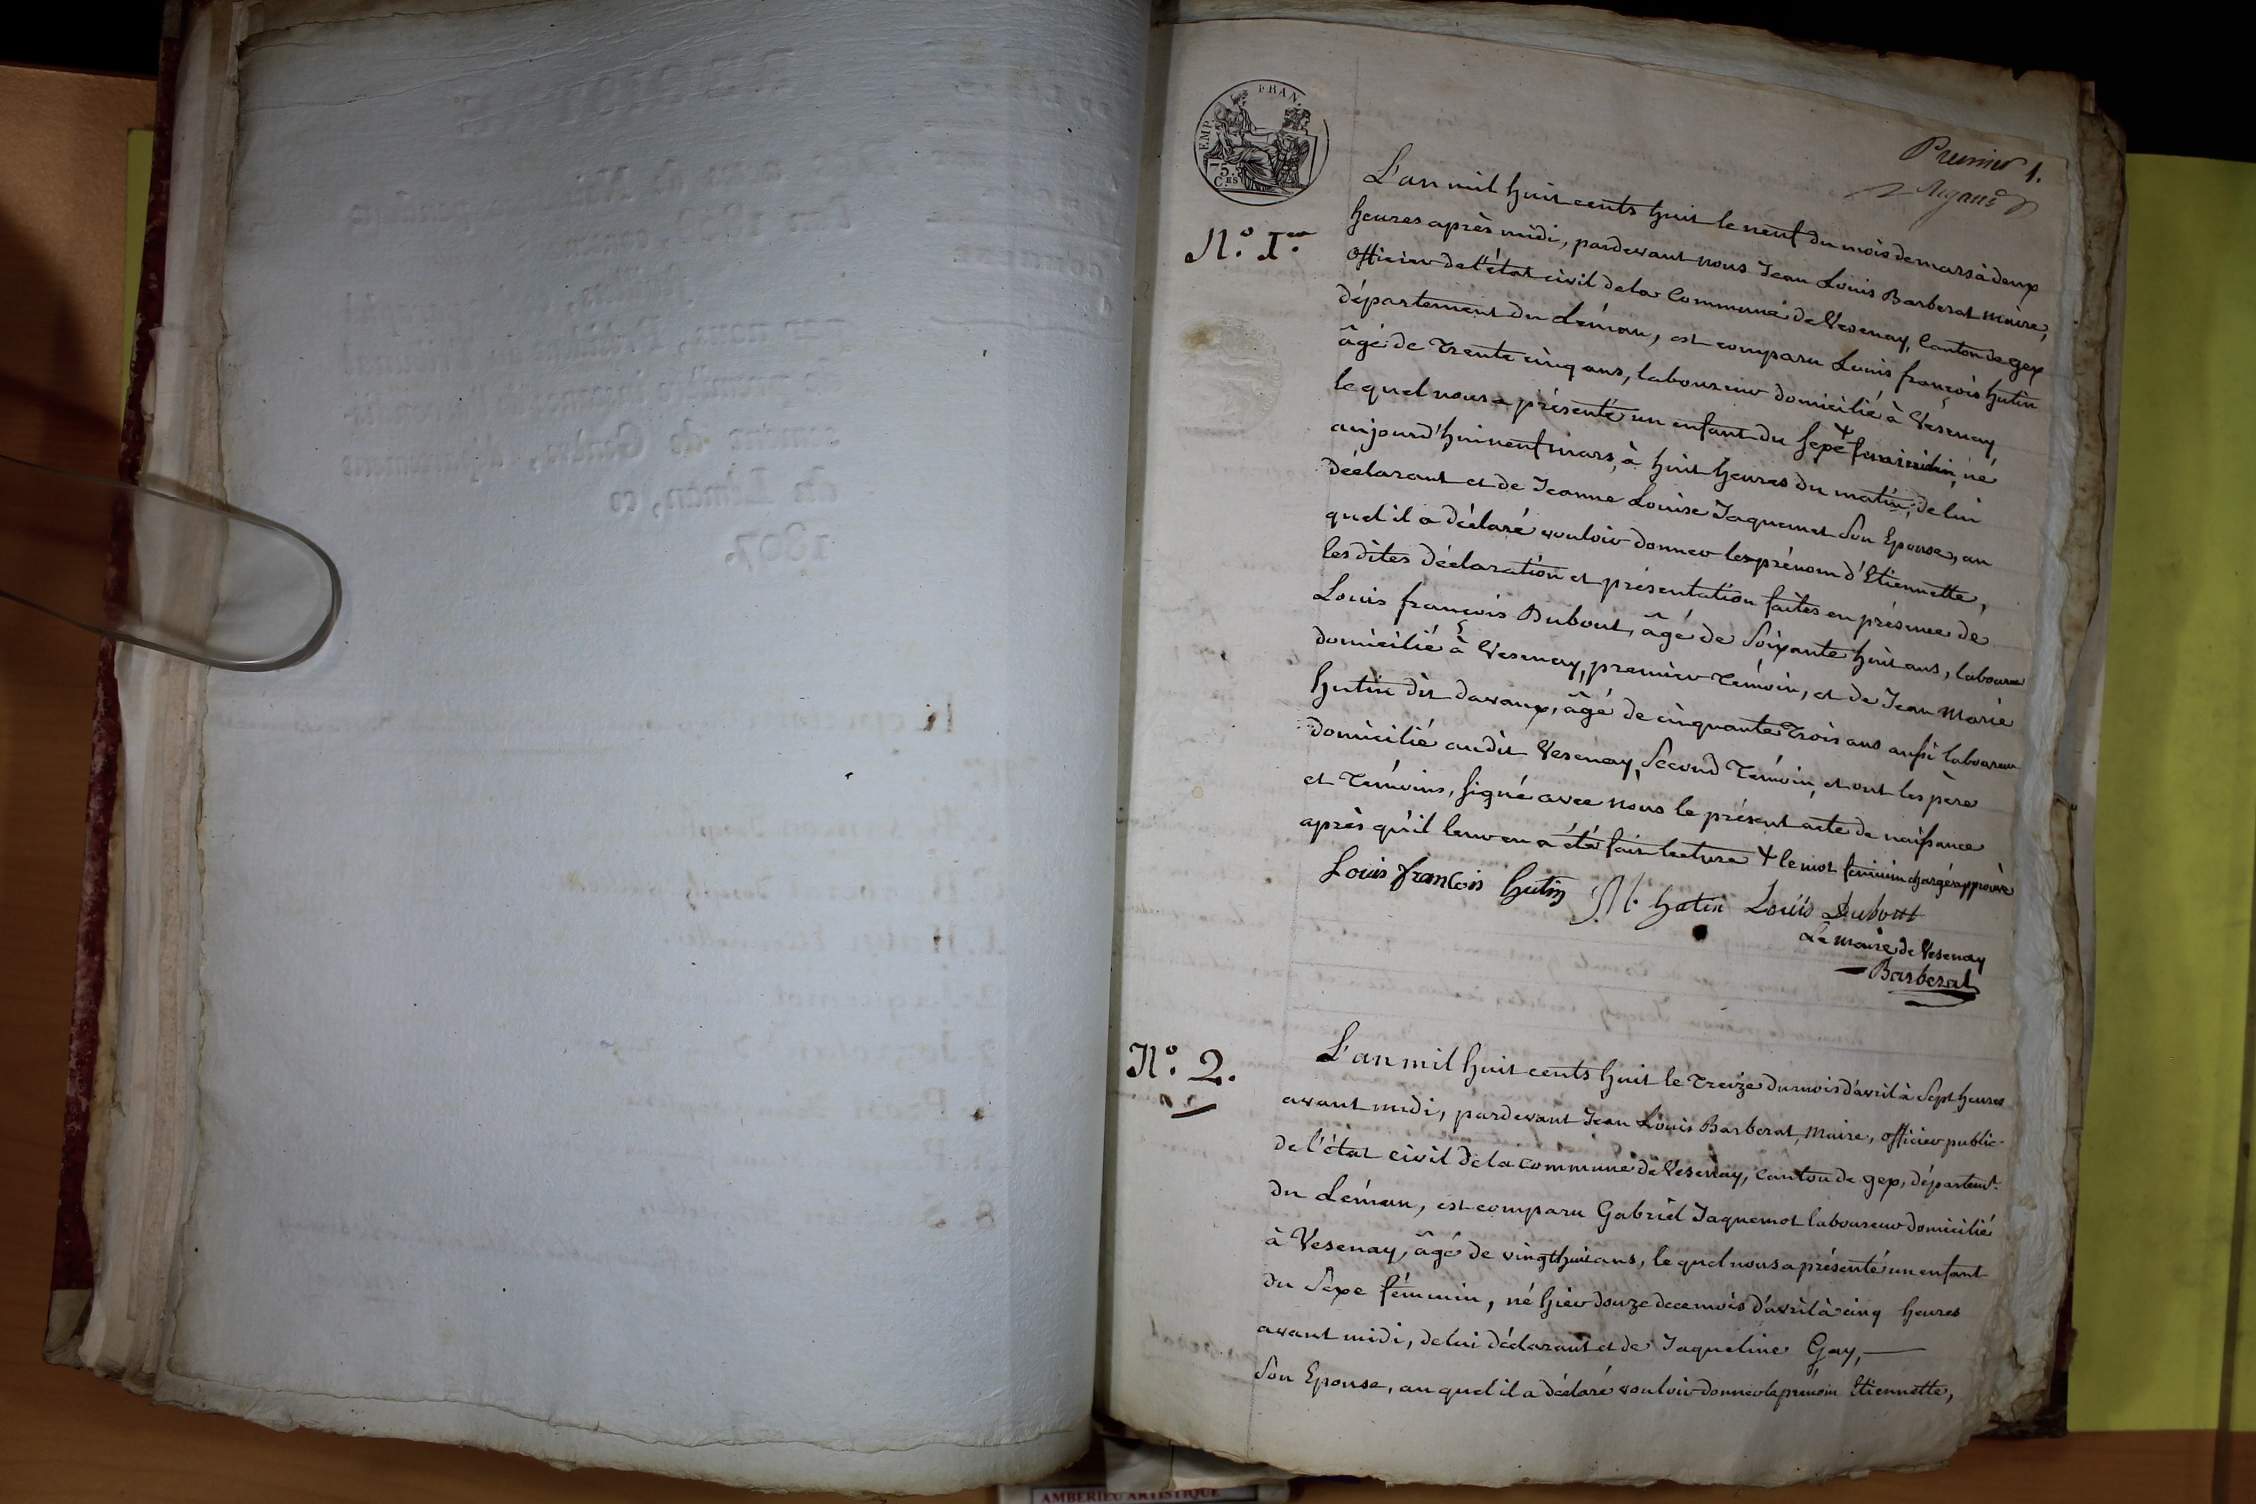 EMP. FRAN.
75.
C.ES
Premier 1.
Rigaud
N.º 1.er
L'an mil huit cents huit le neuf du mois de mars à deux
heures après midi, pardevant nous Jean Louis Barberat maire,
officier de l'état civil de la Commune de Vesenay, Canton de gex
département du Léman, est comparu Louis françois hutin
âgé de trente cinq ans, laboureur domicilié à Vesenay
le quel nous a présenté un enfant du sexe + féminin, né
aujourd'hui neuf mars, à huit heures du matin, de lui
déclarant et de Jeanne Louise Jaquemet son Epouse, au
quel il a déclaré vouloir donner les prénom d'Etiennette,
les dites déclaration et présentation faites en présence de
Louis françois Dubout, âgé de soixante huit ans, laboureur
domicilié à Vesenay, premier témoin, et de Jean Marie
hutin dit davaux, âgé de cinquante trois ans aussi laboureur
domicilié audit Vesenay, second témoin, et ont les père
et témoins, signé avec nous le présent acte de naissance
après qu'il leur en a été fait lecture + le mot féminin chargé approuvé
Louis françois hutin J M. hutin Louis Dubout
Le maire de Vesenay
Barberat
N.º 2.
L'an mil huit cents huit le treize du mois d'avril à sept heures
avant midi, pardevant Jean Louis Barberat, Maire, officier public
de l'état civil de la commune de Vesenay, canton de gex, départemt.
du Léman, est comparu Gabriel Jaquemot laboureur domicilié
à Vesenay, âgé de vingt huit ans, le quel nous a présenté un enfant
du sexe féminin, né hier douze de ce mois d'avril à cinq heures
avant midi, de lui déclarant et de Jaqueline Gay,
son Epouse, au quel il a déclaré vouloir donner le prénom Etiennette,
AMBERIEU ARTISTIQUE